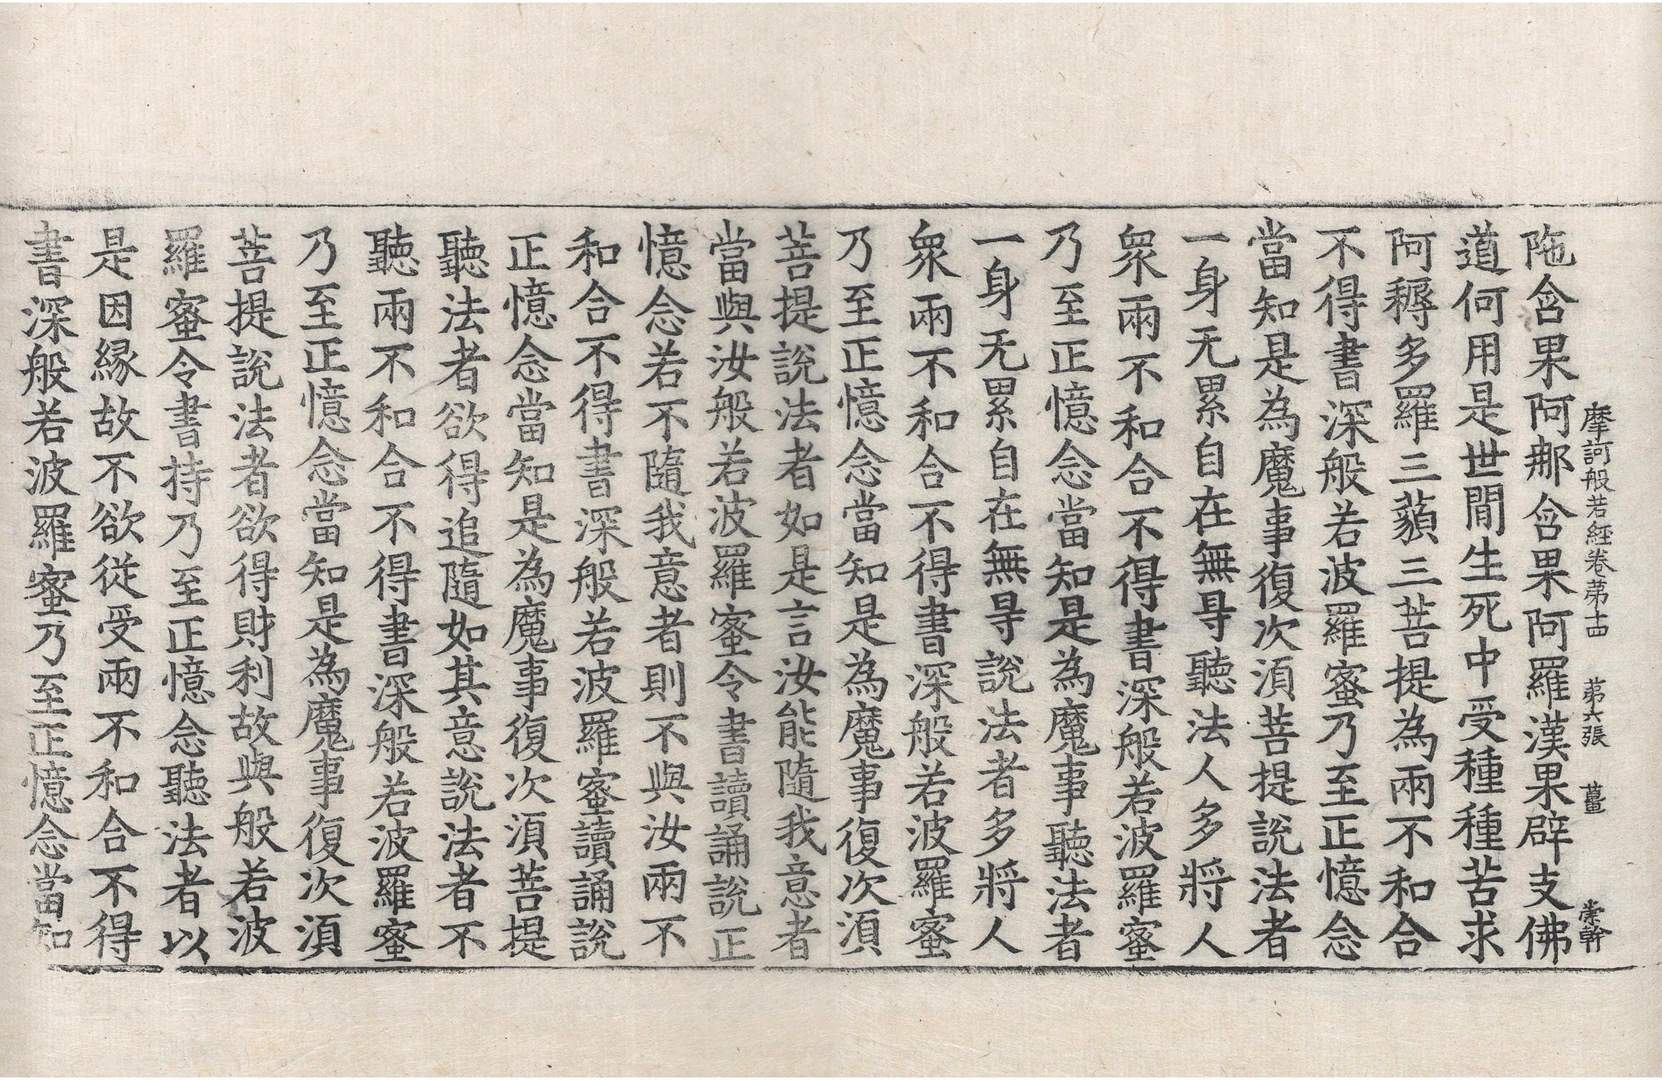 摩訶般若經卷第十四 第六張 薑 崇幹
陁含果阿那含果阿羅漢果辟支佛
道何用是世閒生死中受種種苦求
阿耨多羅三藐三菩提為兩不和合
不得書深般若波羅蜜乃至正憶念
當知是為魔事復次湏菩提說法者
一身无累自在無㝵聽法人多將人
衆兩不和合不得書深般若波羅蜜
乃至正憶念當知是為魔事聽法者
一身无累自在無㝵說法者多將人
衆兩不和合不得書深般若波羅蜜
乃至正憶念當知是為魔事復次湏
菩提說法者如是言汝能隨我意者
當與汝般若波羅蜜令書讀誦說正
憶念若不隨我意者則不與汝兩不
和合不得書深般若波羅蜜讀誦說
正憶念當知是為魔事復次湏菩提
聽法者欲得追隨如其意說法者不
聽兩不和合不得書深般若波羅蜜
乃至正憶念當知是為魔事復次湏
菩提說法者欲得財利故與般若波
羅蜜令書持乃至正憶念聽法者以
是因緣故不欲從受兩不和合不得
書深般若波羅蜜乃至正憶念當知